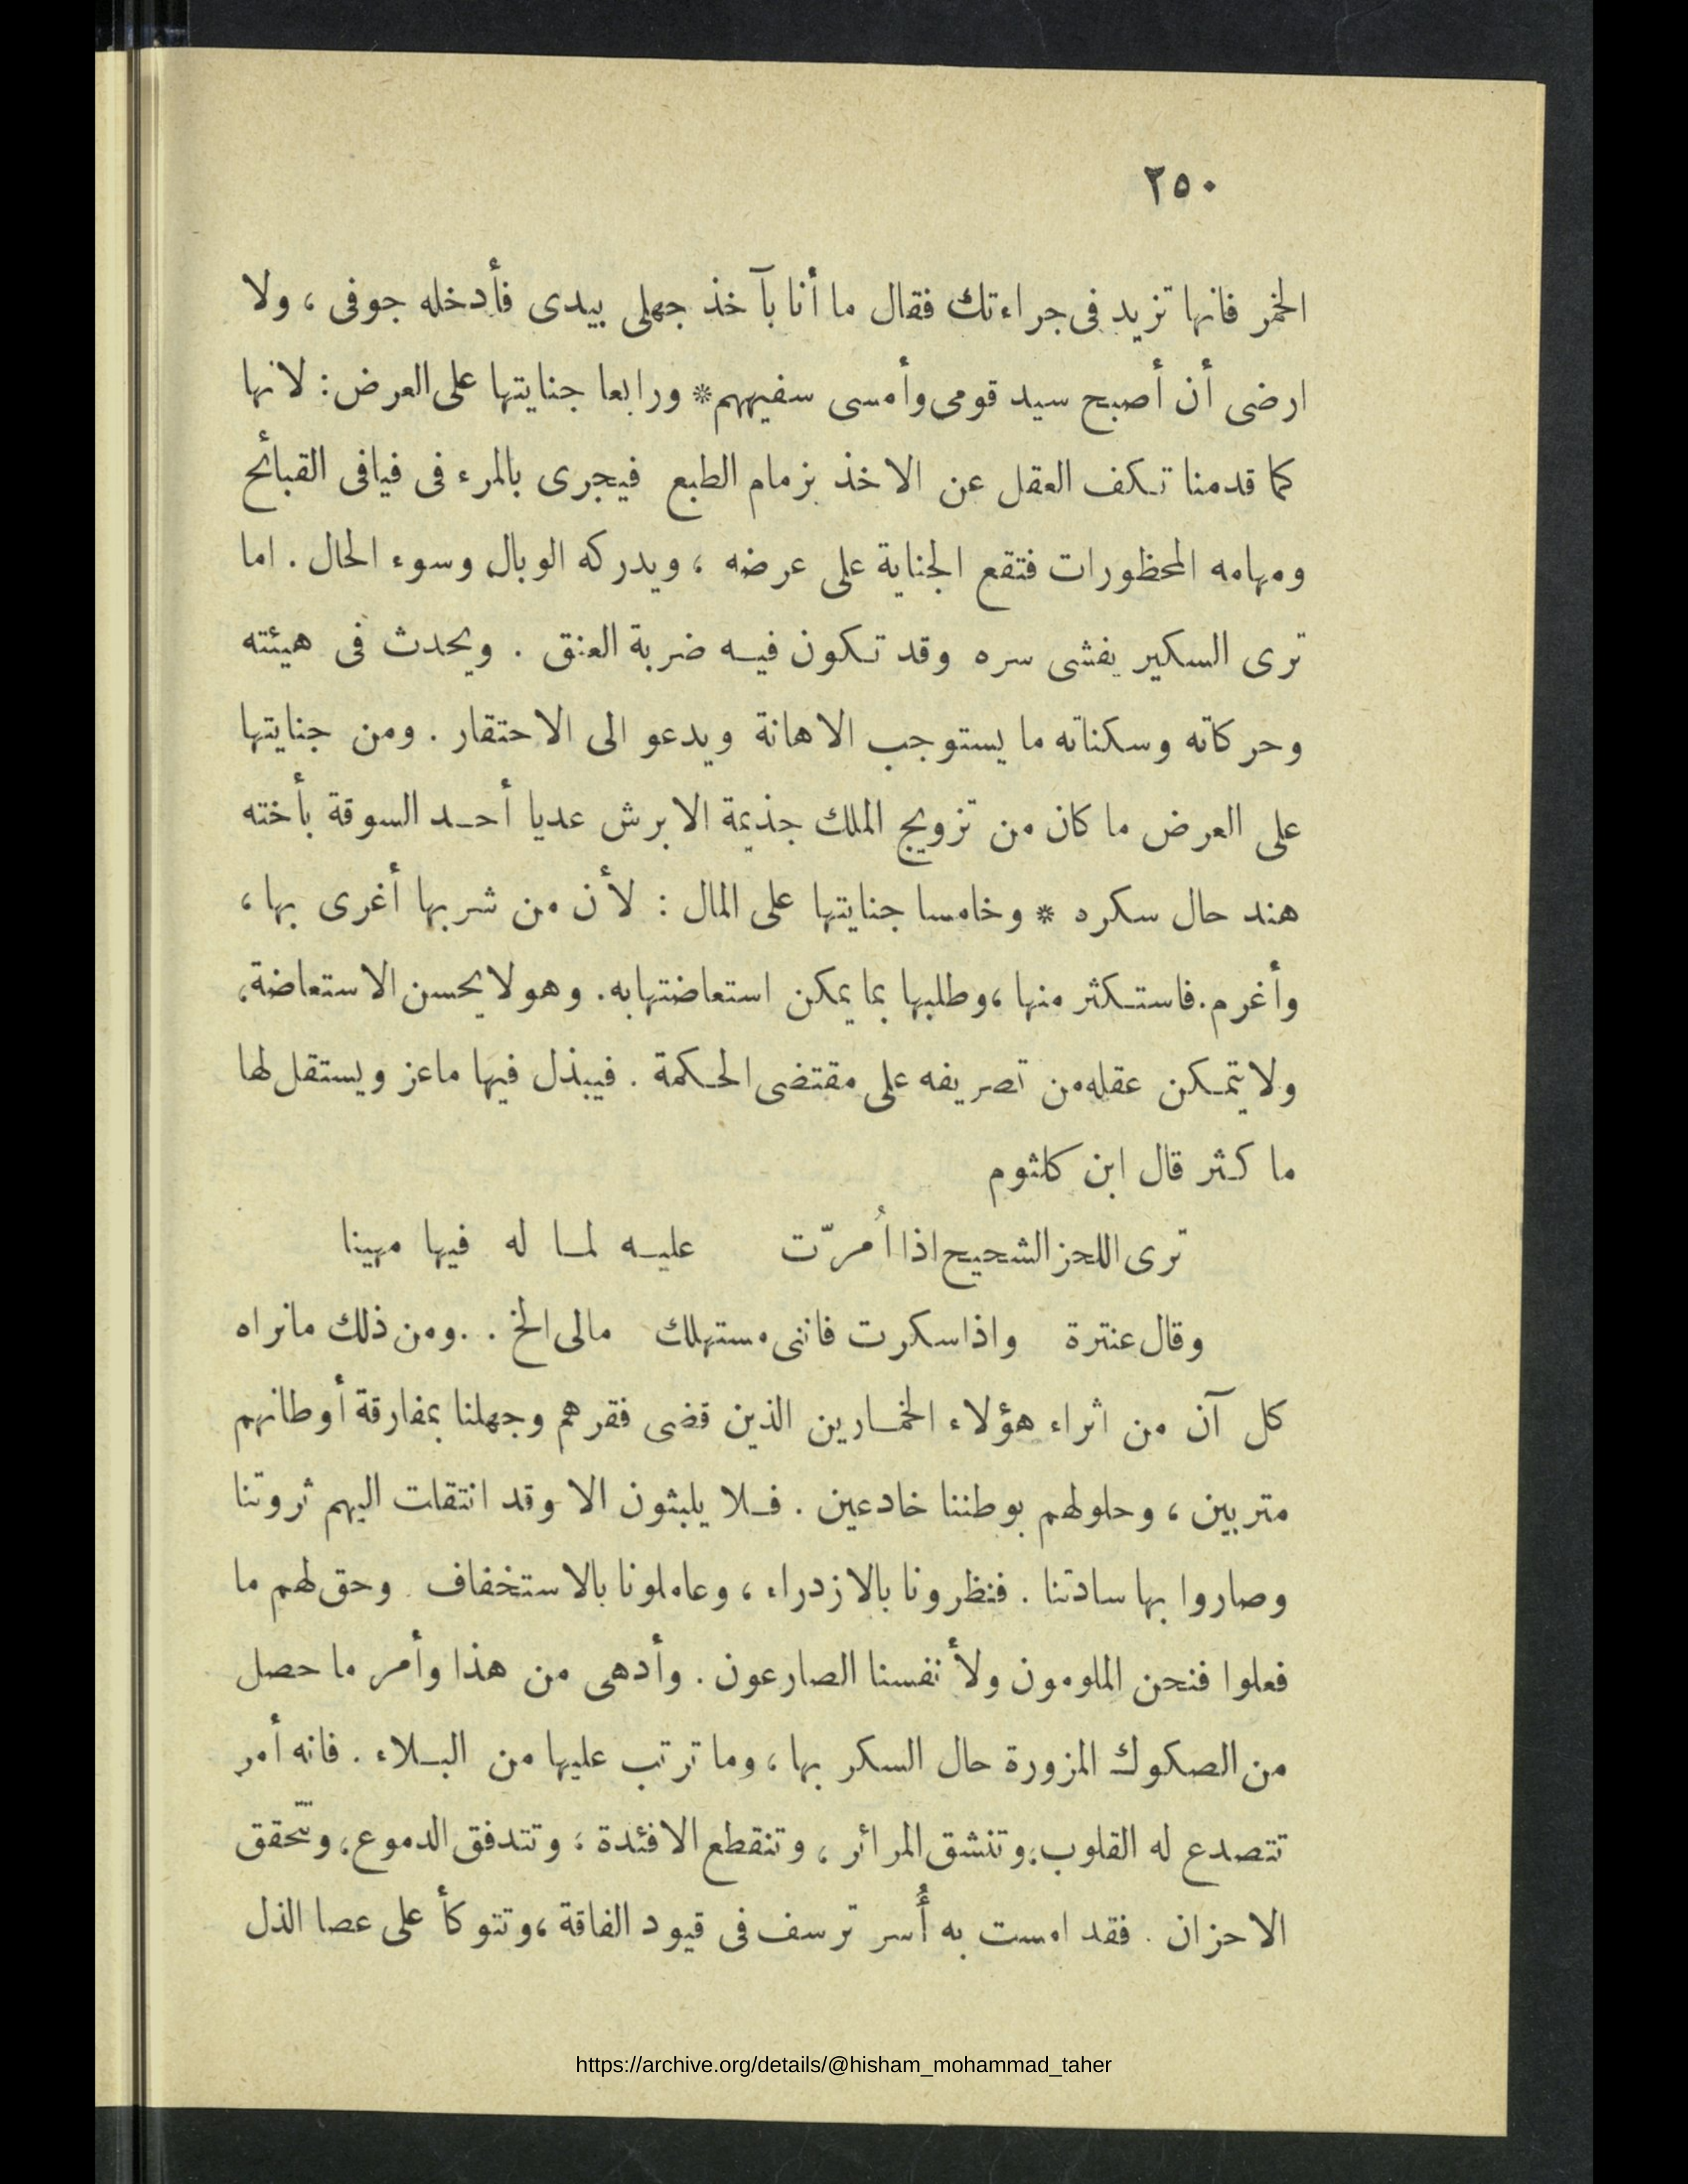 ٢٥٠
الخمر فانها تزيد فى جراءتك فقال ما أنا بآخذ جهلى بيدى فأدخله جوفى ، ولا
ارضى أن أصبح سيد قومى وأمسى سفيههم * ورابعا جنايتها على العرض : لانها
كما قدمنا تكف العقل عن الاخذ بزمام الطبع فيجرى بالمرء فى فيافى القبائح
ومهامه المحظورات فتقع الجناية على عرضه ، ويدركه الوبال وسوء الحال . اما
ترى السكير يفشى سره وقد تكون فيه ضربة العنق . ويحدث فى هيئته
وحركاته وسكناته ما يستوجب الاهانة ويدعو الى الاحتقار . ومن جنايتها
على العرض ما كان من تزويج الملك جذيمة الابرش عديا أحد السوقة بأخته
هند حال سكره * وخامسا جنايتها على المال : لأن من شربها أغرى بها ،
وأغرم . فاستكثر منها ، وطلبها بما يمكن استعاضتها به . وهو لا يحسن الاستعاضة ،
ولا يتمكن عقله من تصريفه على مقتضى الحكمة . فيبذل فيها ما عز ويستقل لها
ما كثر قال ابن كلثوم
ترى اللحز الشحيح اذا اُمرّت عليه لما له فيها مهينا
وقال عنترة واذا سكرت فاننى مستهلك مالى الخ . . ومن ذلك ما نراه
كل آن من اثراء هؤلاء الخمارين الذين قضى فقرهم وجهلنا بمفارقة أوطانهم
متربين ، وحلولهم بوطننا خادعين . فلا يلبثون الا وقد انتقلت اليهم ثروتنا
وصاروا بها سادتنا . فنظرونا بالازدراء ، وعاملونا بالاستخفاف . وحق لهم ما
فعلوا فنحن الملومون ولأنفسنا الصارعون . وأدهى من هذا وأمر ما حصل
من الصكوك المزورة حال السكر بها ، وما ترتب عليها من البلاء . فانه أمر
تتصدع له القلوب ، وتنشق المرائر ، وتنقطع الافئدة ، وتتدفق الدموع ، وتتحقق
الاحزان . فقد امست به أُسر ترسف فى قيود الفاقة ، وتتوكأ على عصا الذل
https://archive.org/details/@hisham_mohammad_taher